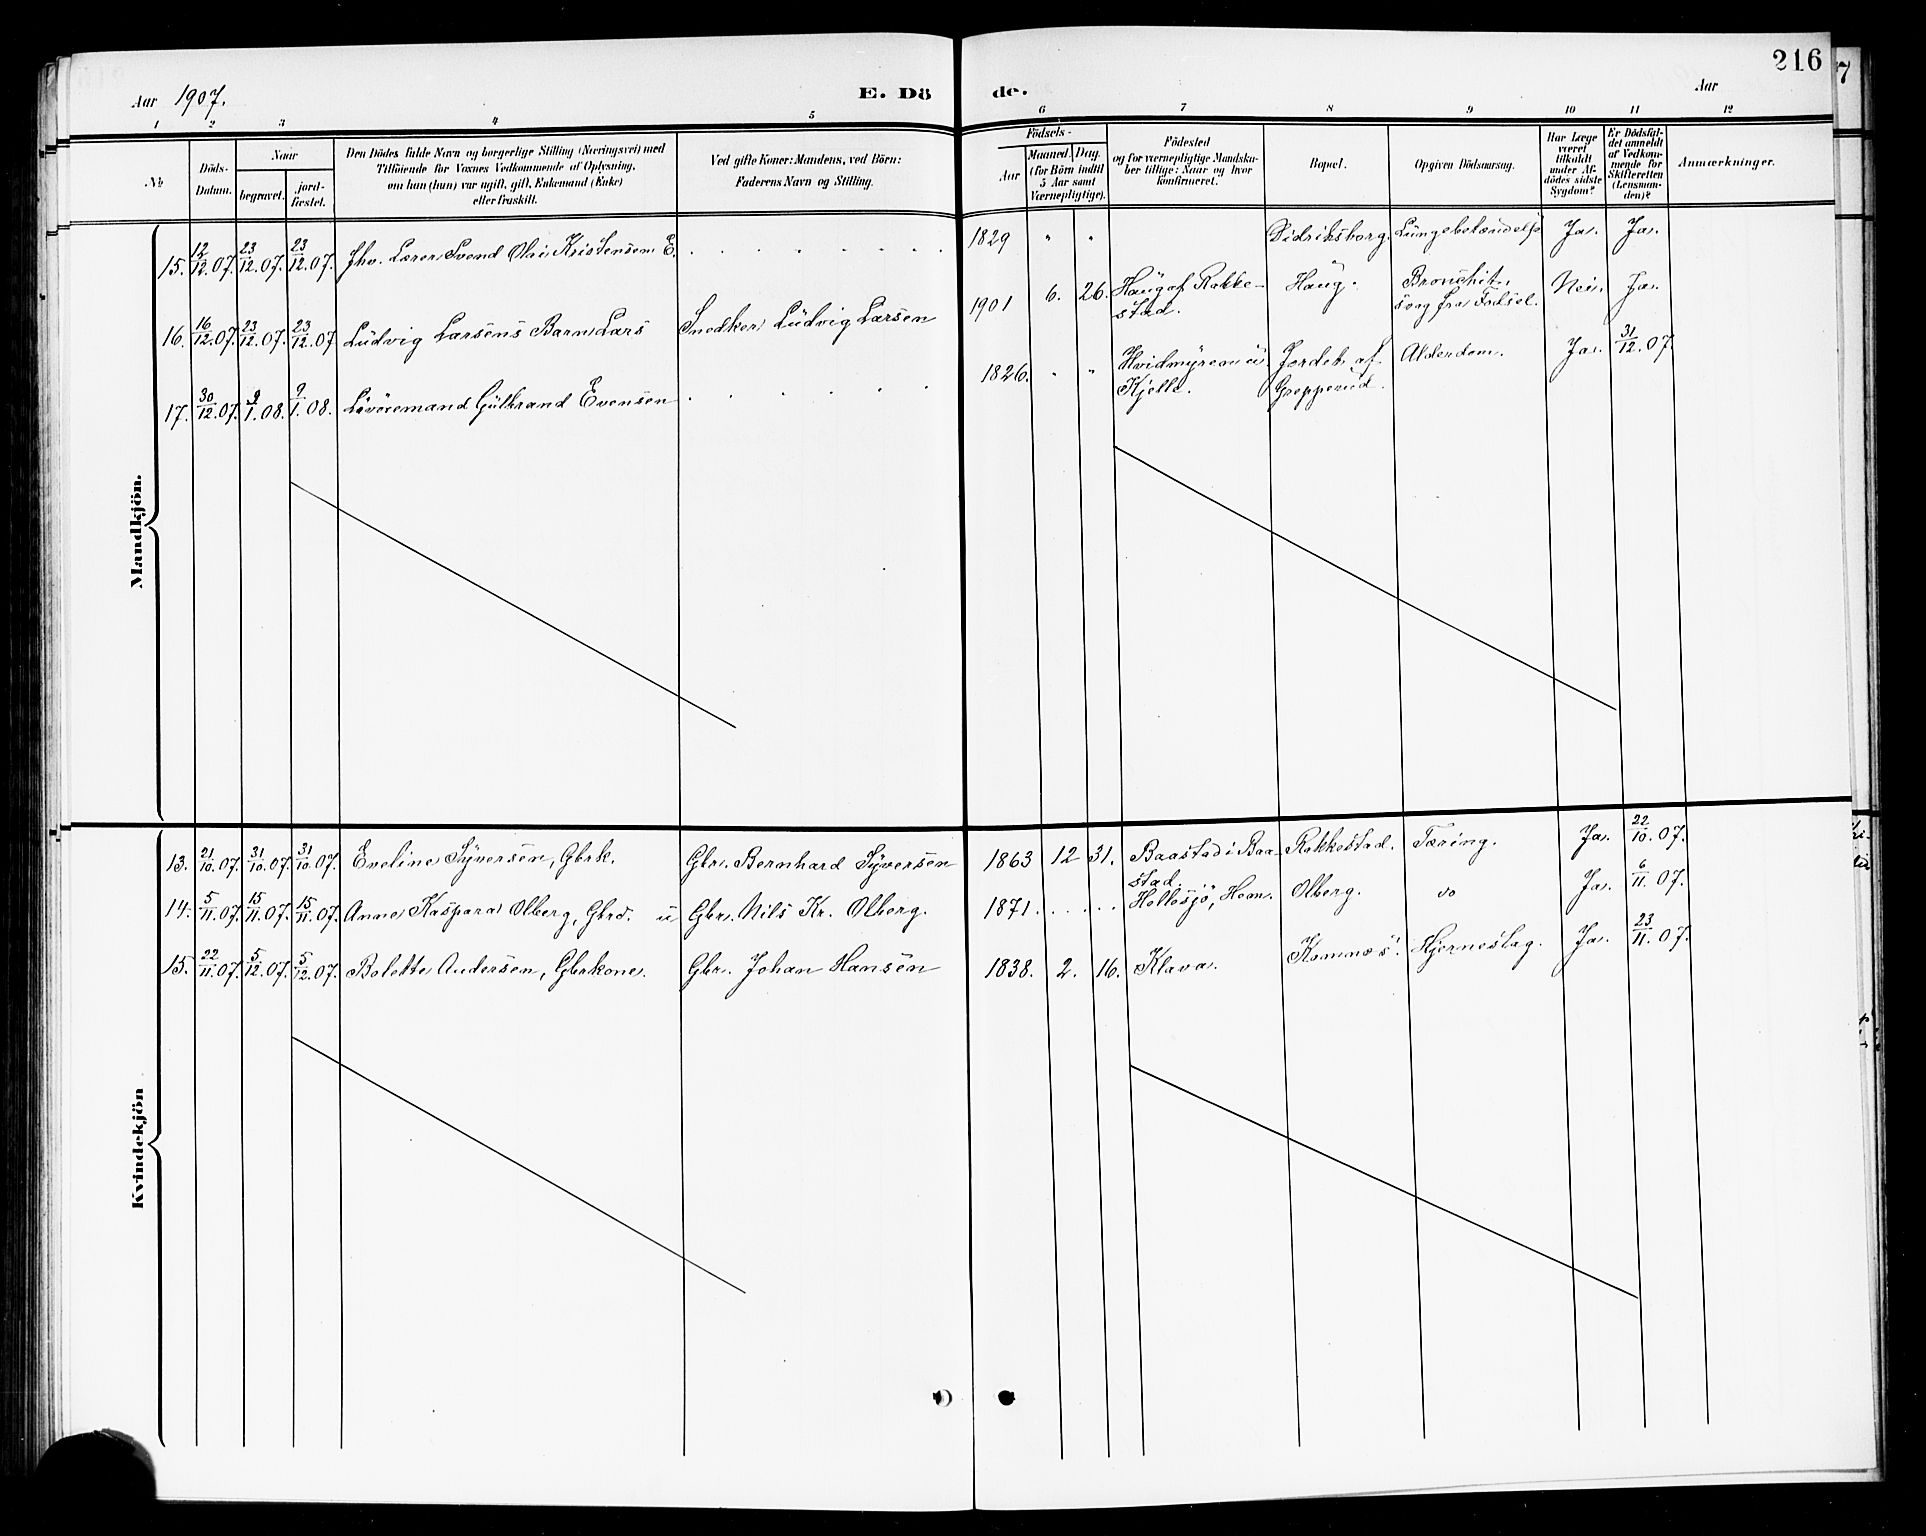 216
Aar 1907.
E. Dö
de.
Aar
1 2 3 4 5 6 7 8 9 10 11 12
No
Döds-
Datum.
Naar
begravet.
jord-
fæstet.
Den Dödes fulde Navn og borgerlige Stilling (Næringsvei) med
Tilföiende for Voxnes Vedkommende af Oplysning,
om han (hun) var ugift, gift, Enkemand (Enke)
eller fraskilt.
Ved gifte Koner: Mandens, ved Börn:
Faderens Navn og Stilling.
Födsels-
Aar
Maaned. Dag.
(for Börn indtil
5 Aar samt
Værnepligtige).
Födested
og for værnepligtige Mandska-
ber tillige: Naar og hvor
konfirmeret.
Bopæl.
Opgiven Dödsaarsag.
Har Læge
været
tilkaldt
under Af-
dödes sidste
Sygdom?
Er Dödsfal-
det anmeldt
af Vedkom-
mende for
Skifteretten
(Lensman-
den)?
Anmærkninger.
Mandkjön.
15. 12/12.07. 23/12.07. 23/12.07. Fhv. Lærer Svend Olai Kristensen E. 1829 " " Didriksborg. Lungebetændelse Ja. Ja.
16. 16/12.07. 23/12.07. 23/12.07 Ludvig Larsens Barn Lars Snedker Ludvig Larsen 1901 6. 26. Haug af Rakke- Haug. Bronchit, Nei. Ja.
stad. svag fra Fødsel.
17. 30/12.07. 9/1.08. 9/1.08. Livöremand Gulbrand Evensen 1826. " " Hvidmyren u. Jordet af Alderdom. Ja. 31/12.07
Kjelle. Greppenud.
Kvindekjön
13. 21/10.07. 31/10.07. 31/10.07. Eveline Syversen, Gbrk. Gbr. Bernhard Syversen 1863 12 31. Baastad i Baa- Rakkestad. Tæring. Ja. 22/10.07.
stad.
14. 5/11.07. 15/11.07. 15/11.07. Anne Kaspara Olberg, Gbrd. u Gbr. Nils Kr. Olberg. 1871. Hellesjö, Hem. Olberg. do Ja. 6/11.07.
15. 22/11.07. 5/12.07. 5/12.07. Bolette Andersen, Gbrkone. Gbr. Johan Hansen 1838. 2. 16. Klava. Komnæs. Hjerneslag. Ja. 23/11.07.